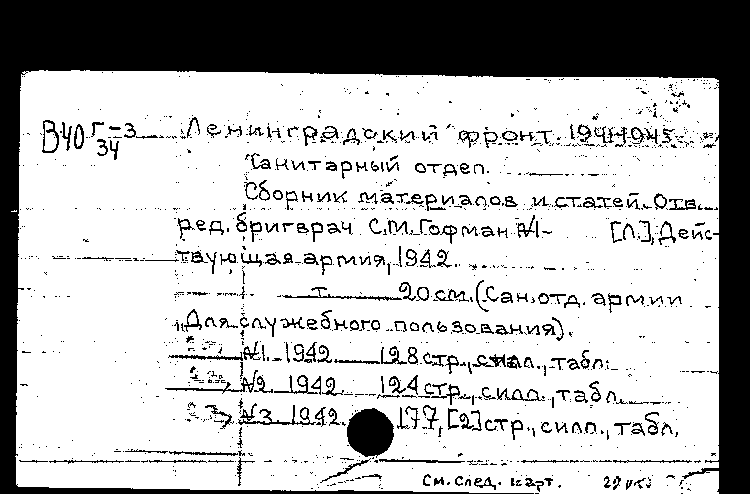 В40 Г-3/34 Ленинградский фронт. 1941-1945.
Санитарный отдел.
Сборник материалов и статей. Отв.
ред. бригврач С.М. Гофман №1- [Л.], Дейс-
твующая армия, 1942.
т. 20 см. (Сан. отд. армии
"Для служебного пользования).
№1. 1942. 128 стр., с илл., табл.
№2. 1942. 124 стр., с илл., табл.
№3. 1942. 177, [2] стр., с илл., табл.
См. след. карт.